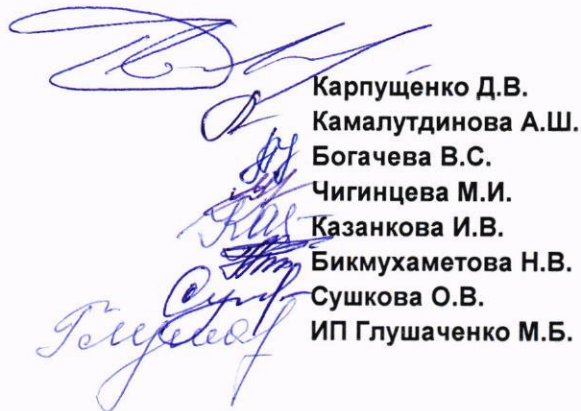 Карпущенко Д.В.
Камалутдинова А.Ш.
Богачева В.С.
Чигинцева М.И.
Казанкова И.В.
Бикмухаметова Н.В.
Сушкова О.В.
ИП Глушаченко М.Б.